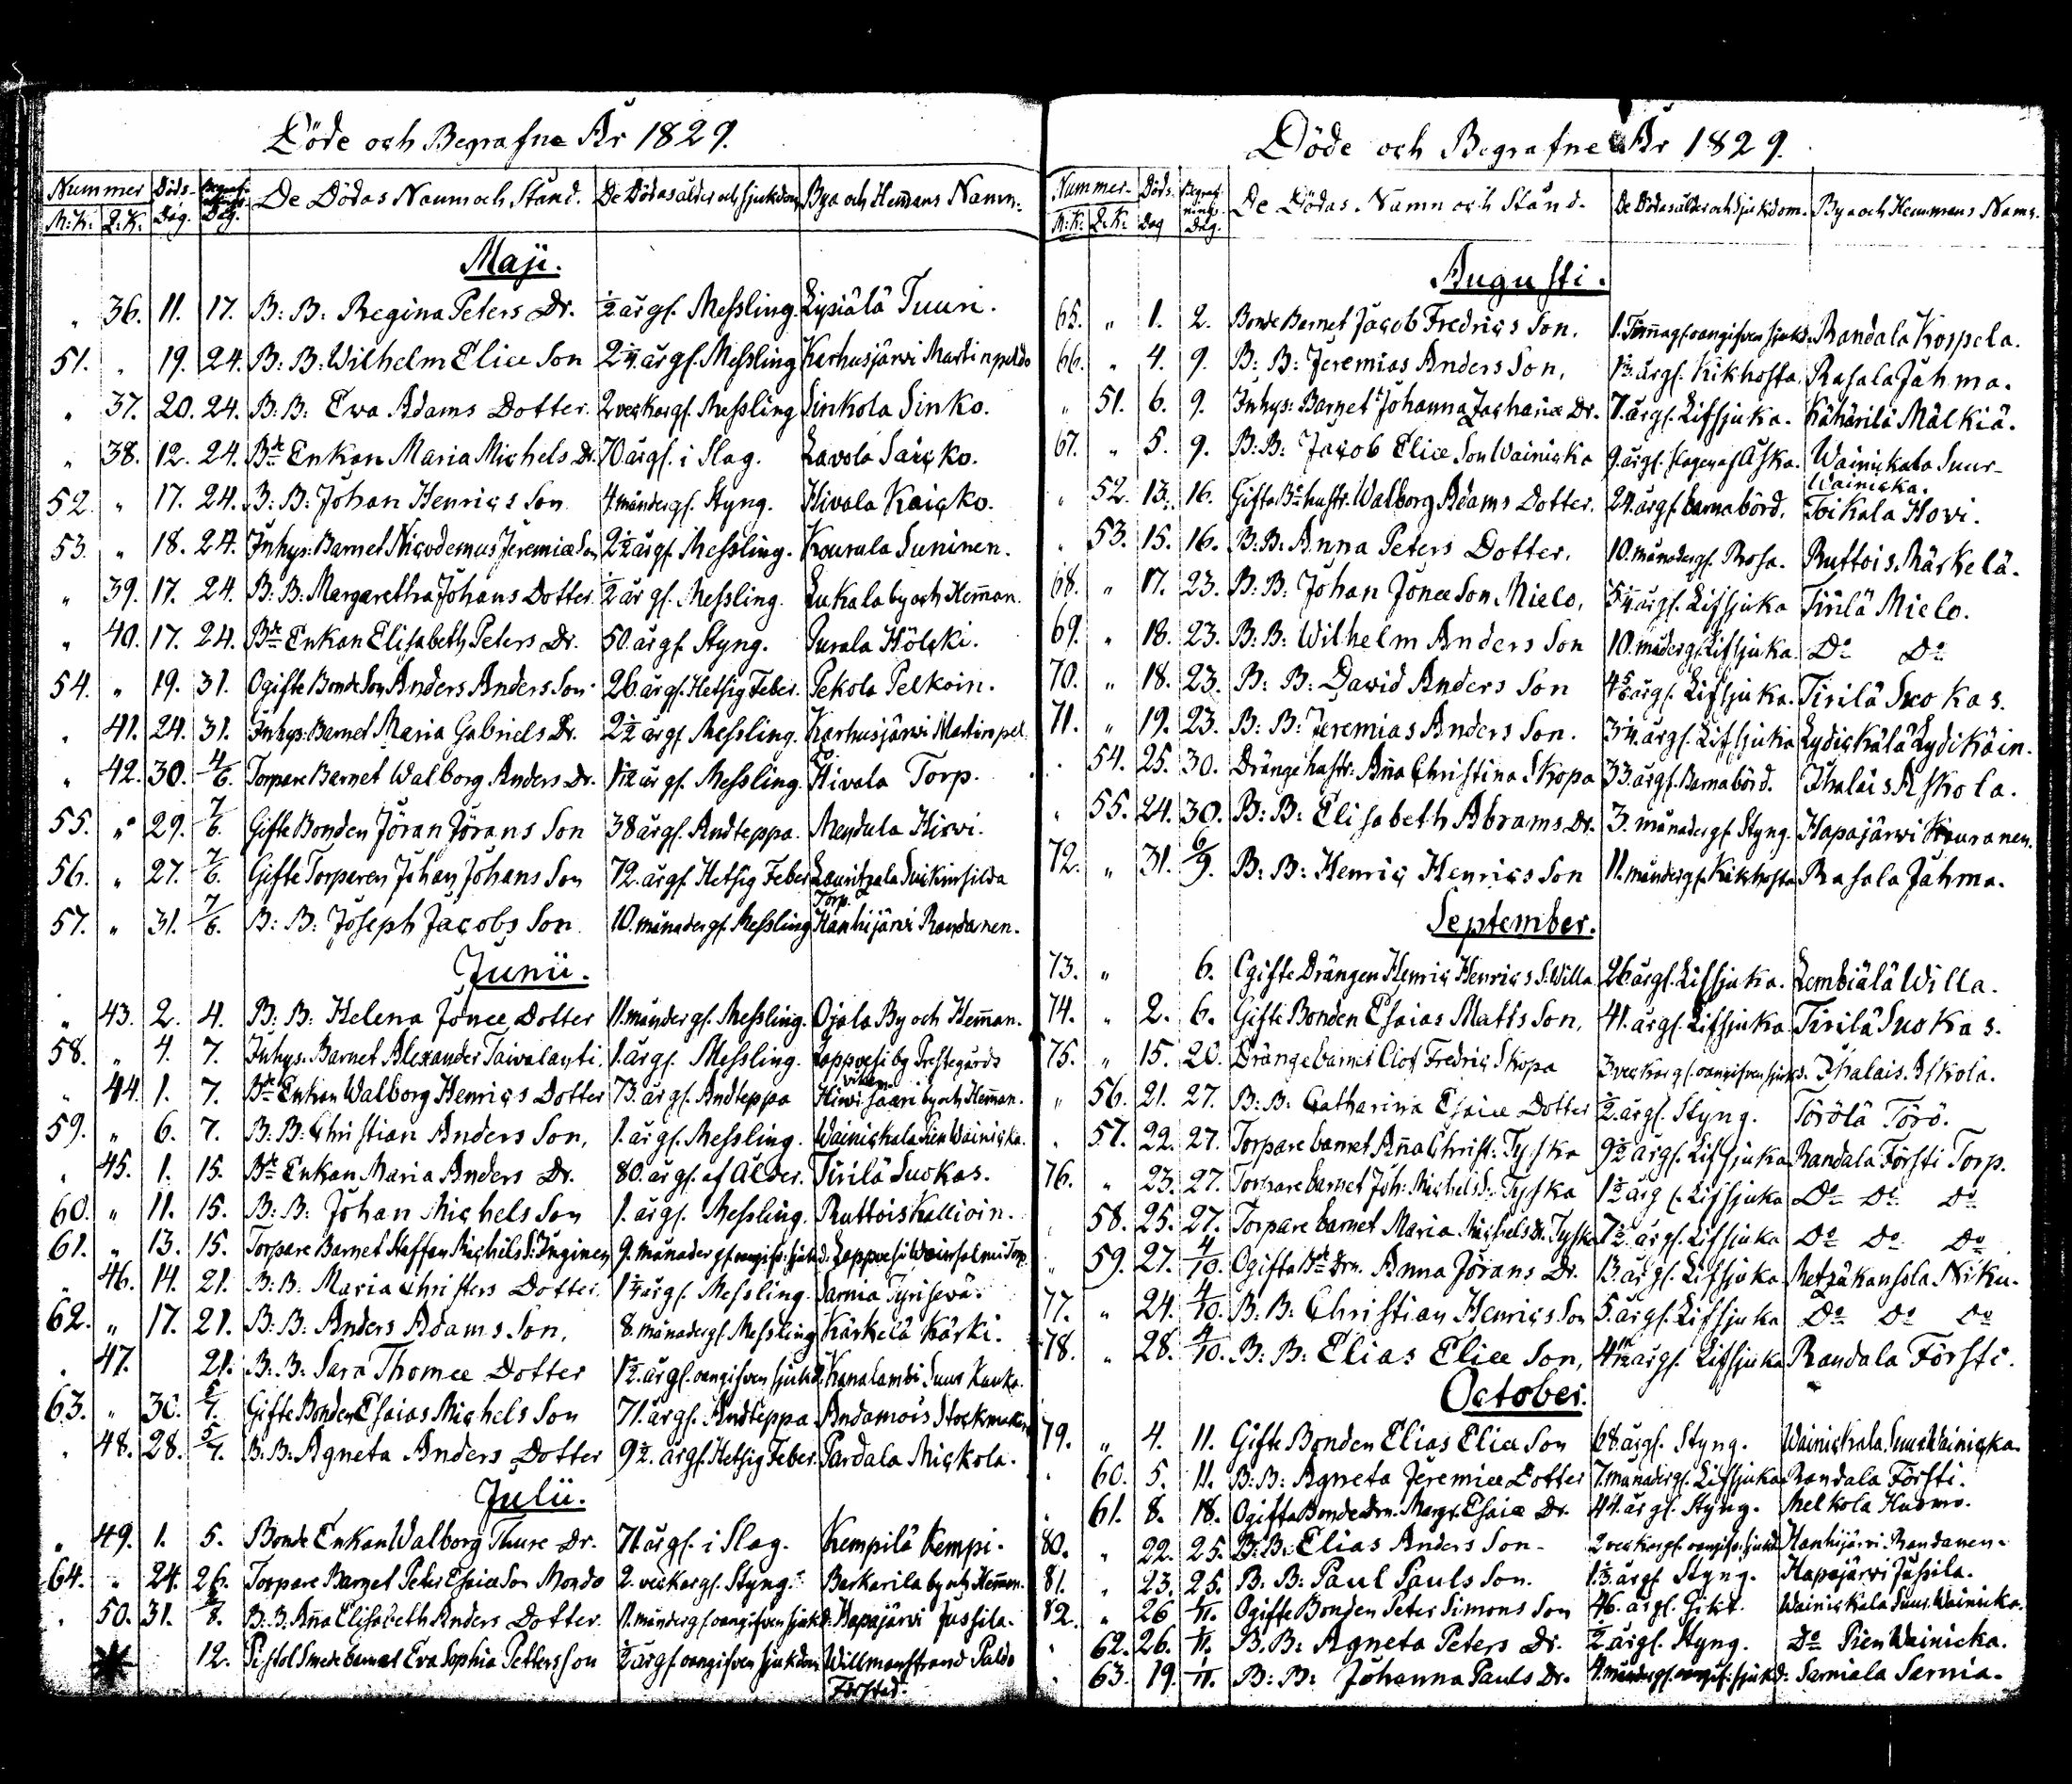 Döde och Begrafne År 1829.
Nummer Döds- Begraf- De Dödas Namn och Stånd. De Dödas ålder och sjukdom Bya och Hem̄ans Namn.
M:K: Q:K: Dag. Dag.
Maji.
" 36. 11. 17. B: B: Regina Peters Dr. ½ år gl. Messling. Lysiälä Tuuri.
51. " 19. 24. B: B: Wilhelm Eliæ Son 2¼ år gl. Messling Karhusjärvi Martinpeldo
" 37. 20. 24. B: B: Eva Adams Dotter 2 veckor gl. Messling Sinkola Sinko.
" 38. 12. 24. Bde Enkan Maria Michels Dr. 70 år gl. i Slag. Lavola Saicko.
52. " 17. 24. B: B: Johan Henrics Son 4 månder gl. Styng. Hivola Kaicko.
53. " 18. 24. Inhys: Barnet Nicodemus Jeremiæ Son 2½ år gl. Messling. Kourula Suninen.
" 39. 17. 24. B: B: Margaretha Johans Dotter ½ år gl. Messling. Lukala by och Hem̄an.
" 40. 17. 24. Bde Enkan Elisabeth Peters Dr. 50. år gl. Styng. Jurala Hölcki.
54. " 19. 31. Ogifte Bonde Son Anders Anders Son 26 år gl. Hetsig Feber. Pekola Pelkoin.
" 41. 24. 31. Inhys: Barnet Maria Gabriels Dr. 2½ år gl. Messling. Karhusjärvi Martinpel.
" 42. 30. 4/6. Torpare Barnet Walborg Anders Dr. 1½ år gl. Messling. Hivola Torp.
55. " 29. 7/6. Gifte Bonden Jöran Jörans Son 38 år gl. Andteppa. Mendula Hirvi.
56. " 27. 7/6. Gifte Torparen Johan Johans Son 72. år gl. Hetsig Feber Lauritzala
Torp.
57. " 31. 7/6. B: B: Joseph Jacobs Son 10. månader gl. Messling Hanhijärvi Randanen.
Junii.
" 43. 2. 4. B: B: Helena Jonæ Dotter 11. månder gl. Messling. Ojala By och Hem̄an.
58. " 4. 7. Inhys: Barnet Alexander Taivalanti. 1. år gl. Messling. Lappvesi by Prestegårds
" 44. 1. 7. Bde Enkan Walborg Henrics Dotter 73. år gl. Andteppa Hirvisaari by och Hem̄an.
59. " 6. 7. B: B: Christian Anders Son, 1. år gl. Messling. Wainickala Pien Wainicka.
" 45. 1. 15. Bde Enkan Maria Anders Dr. 80. år gl. af Ålder. Tirilä Suokas.
60. " 11. 15. B: B: Johan Michels Son 1. år gl. Messling. Ruttois Kallioin.
61. " 13. 15. Torpare Barnet Staffan Michels S: Inginen 9. månader gl. oangifv: sjukd: Lappvesi Wainsalmi Torp.
" 46. 14. 21. B: B: Maria Christers Dotter. 1¼ år gl. Messling. Sarma Tyrisevä.
62. " 17. 21. B: B: Anders Adams Son, 8. månader gl. Messling Kärkelä Kärki.
" 47. 21. B: B: Sara Thomæ Dotter 1½ år gl. oangifven sjukd: Kanalambi Suur Kauka.
63. " 30. 5/7. Gifte Bonden Esaias Michels Son 71. år gl. Andteppa Andamois Stockmakin
" 48. 28. 5/7. B: B: Agneta Anders Dotter 9½. år gl. Hetsig Feber. Pardala Mickola.
Julii.
" 49. 1. 5. Bonde Enkan Walborg Thure Dr. 71. år gl. i Slag. Kempilä Kempi.
64. " 24. 26. Torpare Barnet Peter Esaiæ Son Mondo 2. veckor gl. Styng. Barkarila by och Hem̄an.
" 50. 31. 2/8. B: B: An̄a Elisabeth Anders Dotter. 11. månder gl. oangifven sjukd: Hapajärvi Jussila.
12. Pistol Smeds barnet Eva Sophia Petters son ½ år gl. oangifven sjukdom Willmanstrand Paldo
Förstad.
Döde och Begrafne År 1829.
Nummer. Döds. Begraf- De Dödas Namn och Stånd. De Dödas ålder och sjukdom. Bya och Hemmans Namn.
nings
M:K: Q:K: Dag Dag.
Augusti.
65. " 1. 2. Bonde Barnet Jacob Fredrics Son. 1. Tim̄a gl. oangifven sjukd: Randala Kospela.
66. " 4. 9. B: B: Jeremias Anders Son, 1⅓. år gl. Kikhosta. Rasala Jähma.
" 51. 6. 9. Inhys: Barnet Johanna Zachariæ Dr. 7. år gl. Lifsjuka. Kähärilä Mälkiä.
67. " 5. 9. B: B: Jacob Eliæ Son Wainicka 9. år gl. slagen af Åska. Wainickala Suur-
Wainicka.
" 52. 13. 16. Gifta Bde hustr. Walborg Adams Dotter. 24. år gl. barnabörd. Toikala Hovi.
" 53. 15. 16. B: B: Anna Peters Dotter. 10. månader gl. Rosa. Ruttois Märkelä.
68. " 17. 23. B: B: Johan Jonæ Son Mielo, 5¼ år gl. Lifsjuka Tirilä Mielo.
69. " 18. 23. B: B: Wilhelm Anders Son 10. månder gl. Lifsjuka. Do Do
70. " 18. 23. B: B: David Anders Son 4⅚ år gl. Lifsjuka. Tirilä Suokas.
71. " 19. 23. B: B: Jeremias Anders Son. 3¼. år gl. Lifsjuka Lydickälä Lydikäin.
" 54. 25. 30. Dränge hustr: An̄a Christina Skopa 33. år gl. Barnabörd. Ihalais Askola.
" 55. 24. 30. B: B: Elisabeth Abrams Dr. 3. månader gl. Styng. Hapajärvi Kouranen.
72. " 31. 6/9. B: B: Henric Henrics Son 11. månder gl. Kikhosta Rasala Jähma.
September.
73. " 6. Ogifte Drängen Henric Henrics S. Willa 26 år gl. Lifsjuka. Lembiälä Willa.
74. " 2. 6. Gifte Bonden Esaias Matts Son, 41. år gl. Lifsjuka Tirilä Suokas.
75. " 15. 20. Drängebarnet Olof Fredric Skopa 3 veckor gl. oangifven sjukd. Ihalais Askola.
" 56. 21. 27. B: B: Catharina Esaiæ Dotter ½. år gl. Styng. Törölä Törö.
" 57. 22. 27. Torpare barnet An̄a Christ: Tyska 9½ år gl. Lifsjuka Randala Försti Torp.
76. " 23. 27. Torpare barnet Joh: Michels S: Tyska 1½ år gl. Lifsjuka Do Do Do
" 58. 25. 27. Torpare barnet Maria Michels Dr. Tyska 7½ år gl. Lifsjuka Do Do Do
" 59. 27. 4/10. Ogifta Bde Drn. Anna Jörans Dr. 13. år gl. Lifsjuka Metzäkansola Niku.
77. " 24. 4/10. B: B: Christian Henrics Son 5. år gl. Lifsjuka Do Do Do
78. " 28. 4/10. B: B: Elias Eliæ Son, år gl. Lifsjuka Randala Försti.
October.
79. " 4. 11. Gifte Bonden Elias Eliæ Son 68. år gl. Styng. Wainickala Suur Wainicka.
" 60. 5. 11. B: B: Agneta Jeremiæ Dotter 7. månader gl. Lifsjuka Randala Försti.
" 61. 8. 18. Ogifta Bonde Drn. Margr. Esaiæ Dr. 44. år gl. Styng. Melkola Huomo.
80. " 22. 25. B: B: Elias Anders Son 2 veckor gl. oangifv: sjukd Hanhijärvi Randanen.
81. " 23. 25. B: B: Paul Pauls Son. 1⅓. år gl. Styng. Hapajärvi Jussila.
82. " 26 1/11. Ogifte Bonden Peter Simons Son 46. år gl. Gikt. Wainickala Suur Wainicka.
" 62. 26. 1/11. B: B: Agneta Peters Dr. ½ år gl. Styng. Do Pien Wainicka.
" 63. 19. 1/11. B: B: Johanna Pauls Dr. 4. månder gl. oangif: sjukd: Sarniala Sarnia.